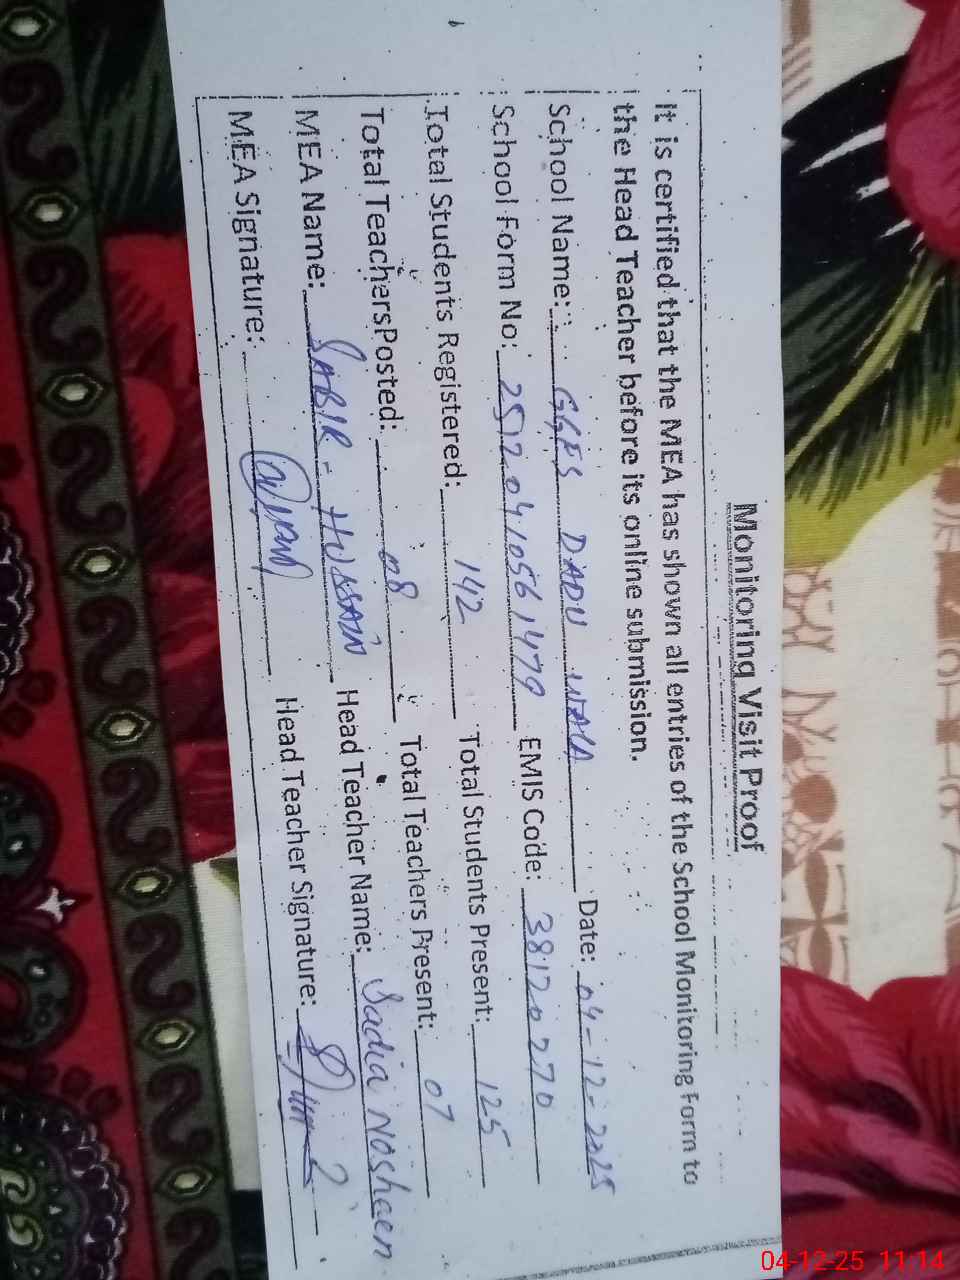 Monitoring Visit Proof
It is certified that the MEA has shown all entries of the School Monitoring Form to
the Head Teacher before its online submission.
School Name: GGES DADU WALA Date: 04-12-2025
School Form No: 25120410561479 EMIS Code: 38120270
Total Students Registered: 142 Total Students Present: 125
Total Teachers Posted: 08 Total Teachers Present: 07
MEA Name: SABIR - HUSSAIN Head Teacher Name: Sadia Noshaen
MEA Signature: Head Teacher Signature:
04-12-25 11:14